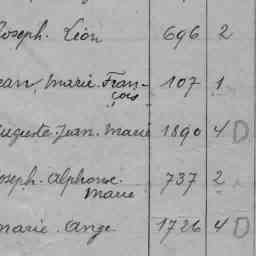 Joseph. Léon 696 2
ean Marie Fran-
çois 107 1
Auguste Jean. Marie 1890 4 D
oseph. Alphonse.
Marie 737 2
marie. Ange 1726 4 D